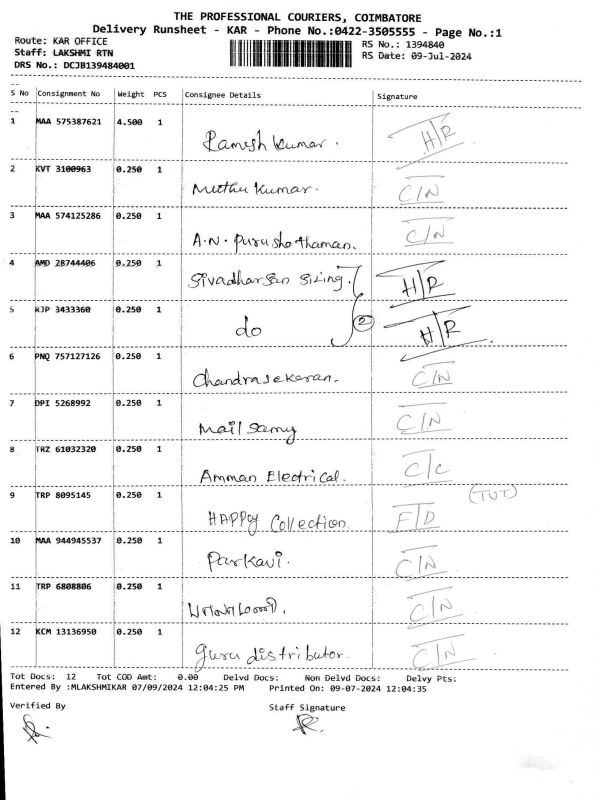 THE PROFESSIONAL COURIERS, COIMBATORE
Delivery Runsheet - KAR - Phone No.:0422-3505555 - Page No.:1
Route: KAR OFFICE RS No.: 1394840
Staff: LAKSHMI RTN RS Date: 09-Jul-2024
DRS No.: DCJB139484001
S No Consignment No Weight PCS Consignee Details Signature
1 MAA 575387621 4.500 1 Ramesh kumar. H/R
2 KVT 3100963 0.250 1 Muthu kumar. C/N
3 MAA 574125286 0.250 1 A.N. Purushothaman. C/N
4 AMD 28744406 0.250 1 Sivadharsan Sizing. H/R
5 RJP 3433360 0.250 1 do 2 H/R
6 PNQ 757127126 0.250 1 Chandrasekaran. C/N
7 DPI 5268992 0.250 1 Mail Samy C/N
8 TRZ 61032320 0.250 1 Amman Electrical. C/C
9 TRP 8095145 0.250 1 HAPPy Collection F/D (TUT)
10 MAA 944945537 0.250 1 Parkavi. C/N
11 TRP 6808806 0.250 1 C/N
12 KCM 13136950 0.250 1 guru distributor. C/N
Tot Docs: 12 Tot COD Amt: 0.00 Delvd Docs: Non Delvd Docs: Delvy Pts:
Entered By :MLAKSHMIKAR 07/09/2024 12:04:25 PM Printed On: 09-07-2024 12:04:35
Verified By Staff Signature